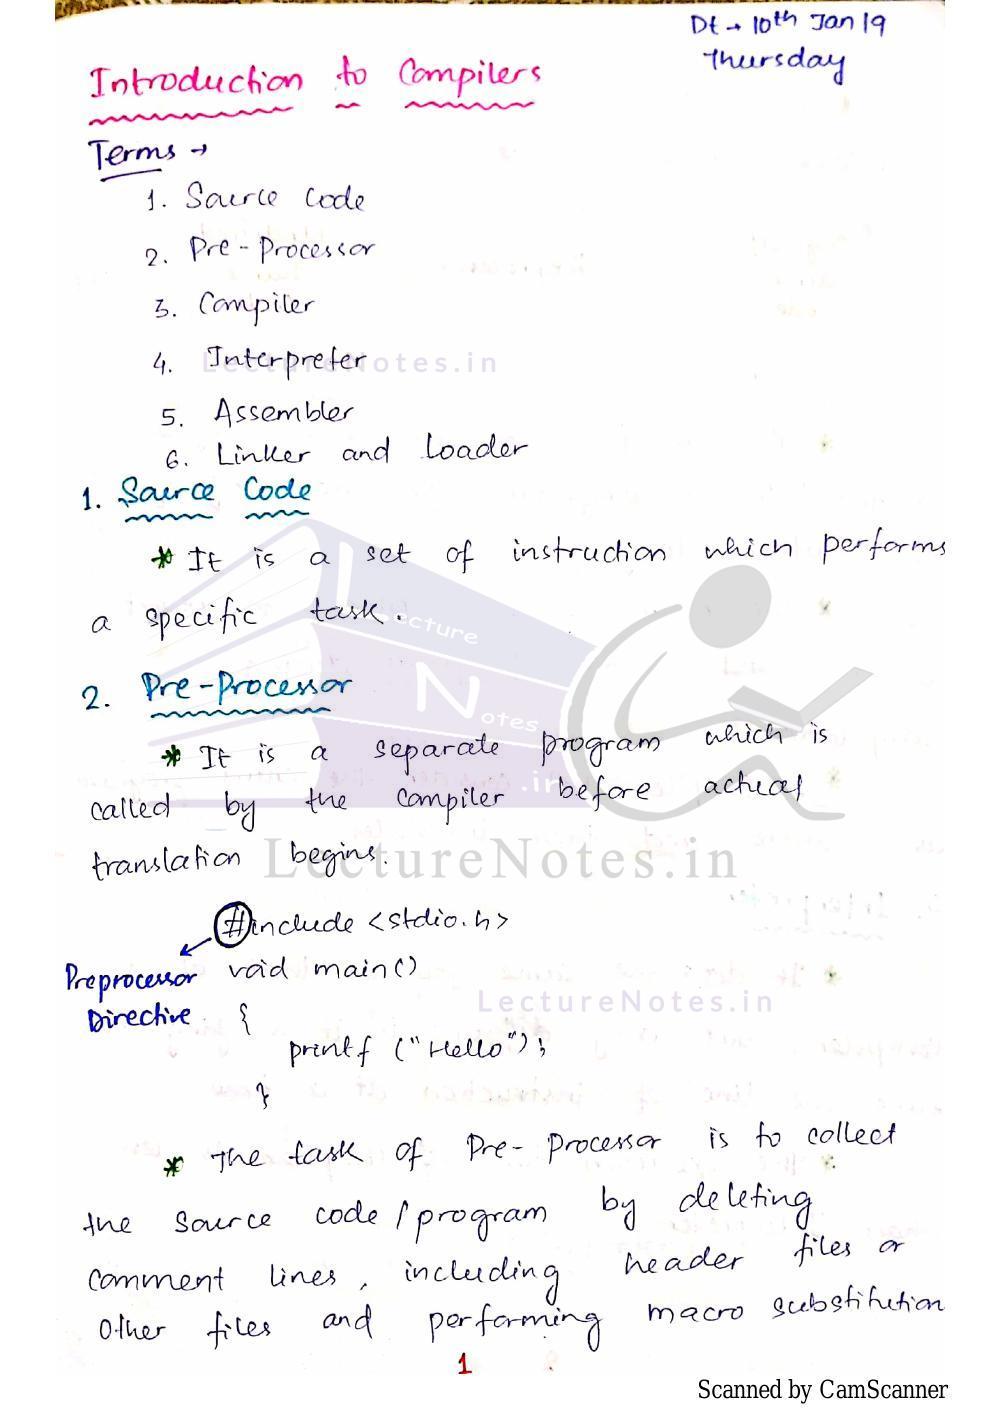 Dt → 10th Jan 19
Thursday
Introduction to Compilers
Terms →
1. Source Code
2. Pre-Processor
3. Compiler
4. Interpreter
LectureNotes.in
5. Assembler
6. Linker and Loader
1. Source Code
* It is a set of instruction which performs
a specific task.
Lecture
2. Pre-Processor
Notes
* It is a separate program which is
.in
called by the compiler before actual
translation begins.
LectureNotes.in
#include <stdio.h>
Preprocessor void main()
LectureNotes.in
Directive {
printf ("Hello");
}
* The task of Pre-Processor is to collect
the source code/program by deleting
comment lines, including header files or
other files and performing macro substitution
1
Scanned by CamScanner